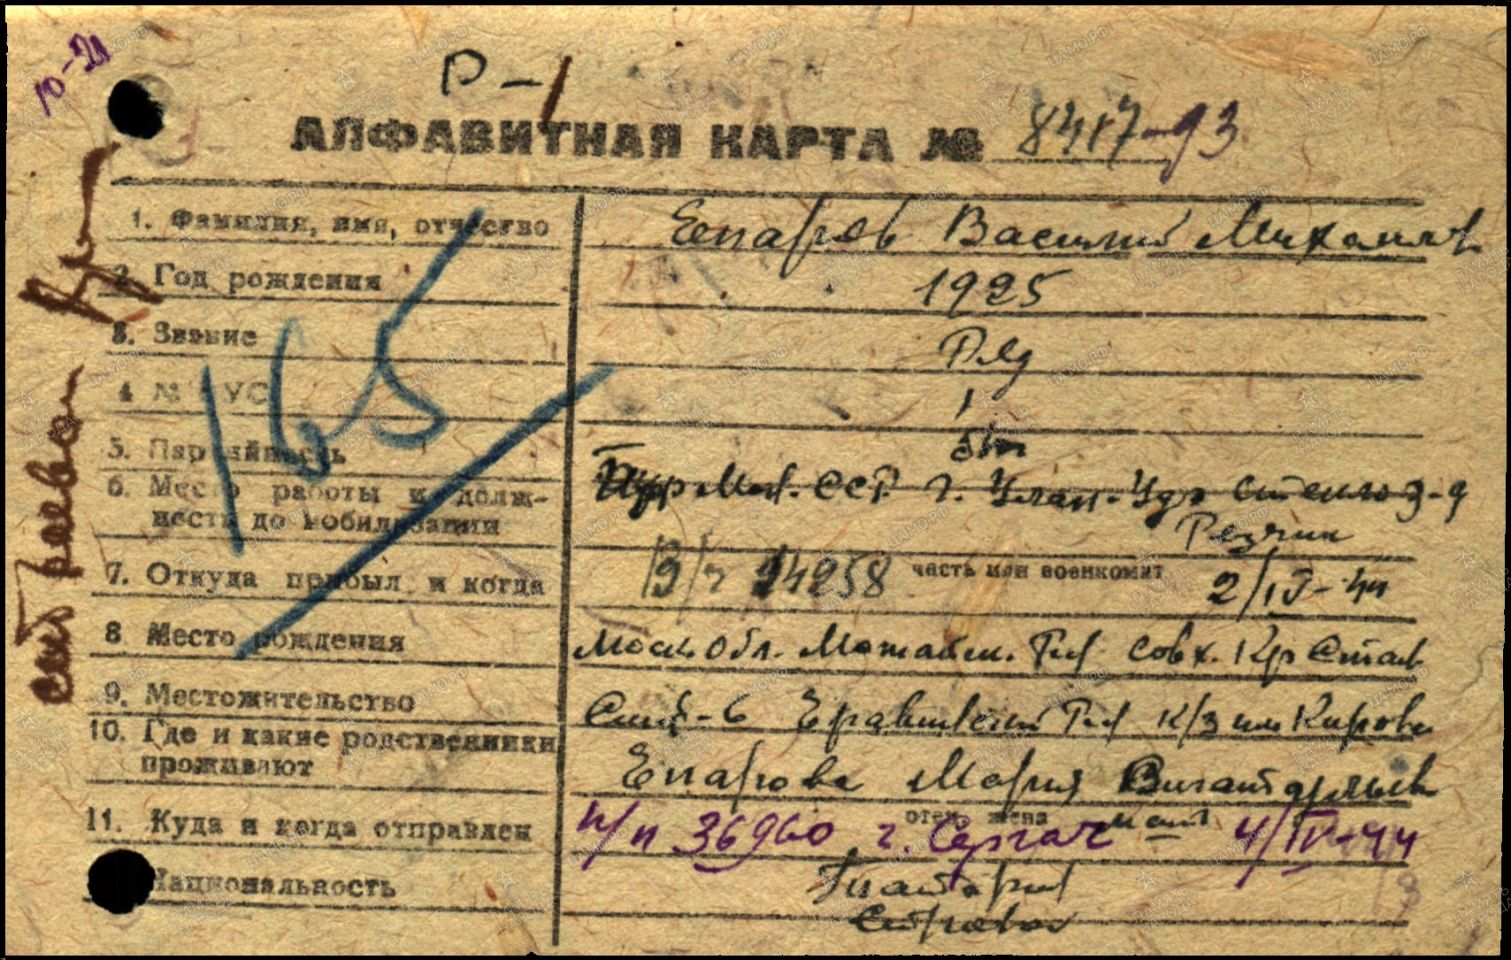 10-21
Р-1
АЛФАВИТНАЯ КАРТА № 8417-93
1. Фамилия, имя, отчество Епарев Василий Михайлов
2. Год рождения 1925
3. Звание Ряд
4 № УС 1
165
5. Партийность б/п
6. Место работы и долж- Бур Мон. ССР. г. Улан-Удэ Стекло з-д
ность до мобилизации Резчик
7. Откуда прибыл и когда В/ч 14258 часть или военкомат 2/IV-44
8. Место рождения Моск. Обл. Можайск. совх. Кр
9. Местожительство к/з им Кирова
10. Где и какие родственники Епарова Мария
проживают
отец, жена мать
11. Куда и когда отправлен п/п 36960 г. Сергач 4/IV-44
Национальность
Строевой